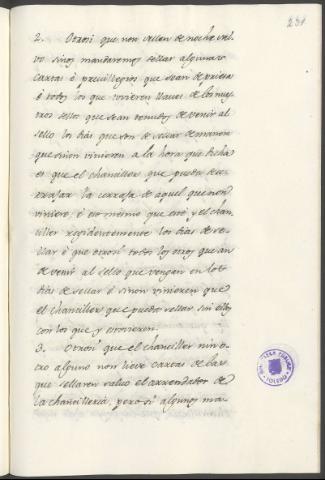 231
2. Otrosi que non sellen de noche sal-
vo sinos mandaremos sellar algunas
cartas ó previllegios que sean de priesa
é todos los que tovieren llaves de los nues-
tros sellos que sean tenudos de venir al
sello los dias que son de sellar de mañana
que sinon vinieren a la hora que dicha
es que el chanciller que pueda des-
cerrajar la cerraja de aquel que non
viniere, é eso mesmo que esté y el chan-
ciller residentemente los dias de se-
llar é que otrosi todos los otros que an
de venir al sello que vengan en los
dias de sellar é sinon vinieren que
el chanciller que pueda sellar sin ellos
con los que y estovieren.
3. Otrosi que el chanciller nin o-
tro alguno non lieve cartas de las
que sellaren salvo el arrendador de
la chancilleria, pero si algunos ma-
TOLEDO